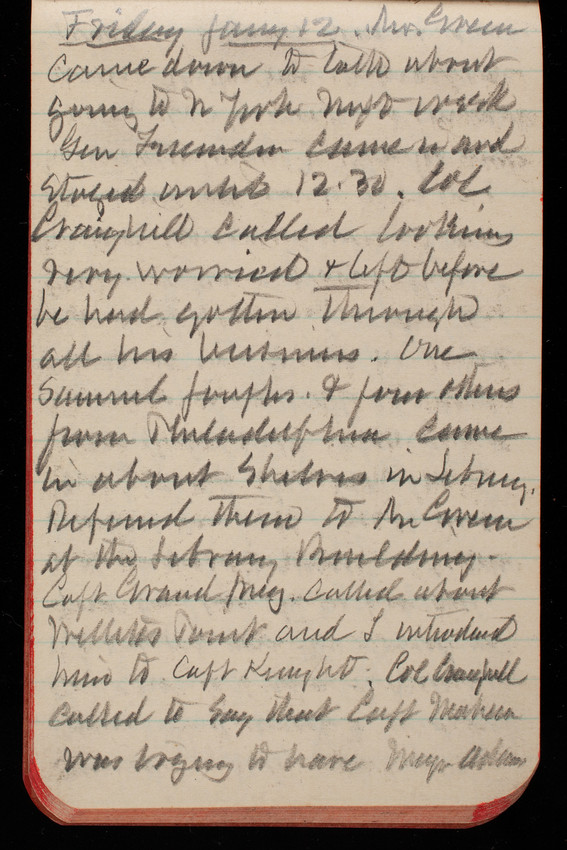 Friday Jany 12. Mr. Green
came down to talk about
going to N York next week
Gen came in and
stayed until 12.30. Col
Craighill called looking
very worried & left before
he had gotten through
all his business. One
Samuel & four others
from Philadelphia came
in about Shelves in Library.
Referred them to Mr Green
at the Library Building.
Capt called about
Willets Point and I introduced
him to Capt Knight. Col Craighill
called to say that Capt Mahan
was trying to have Major Adams